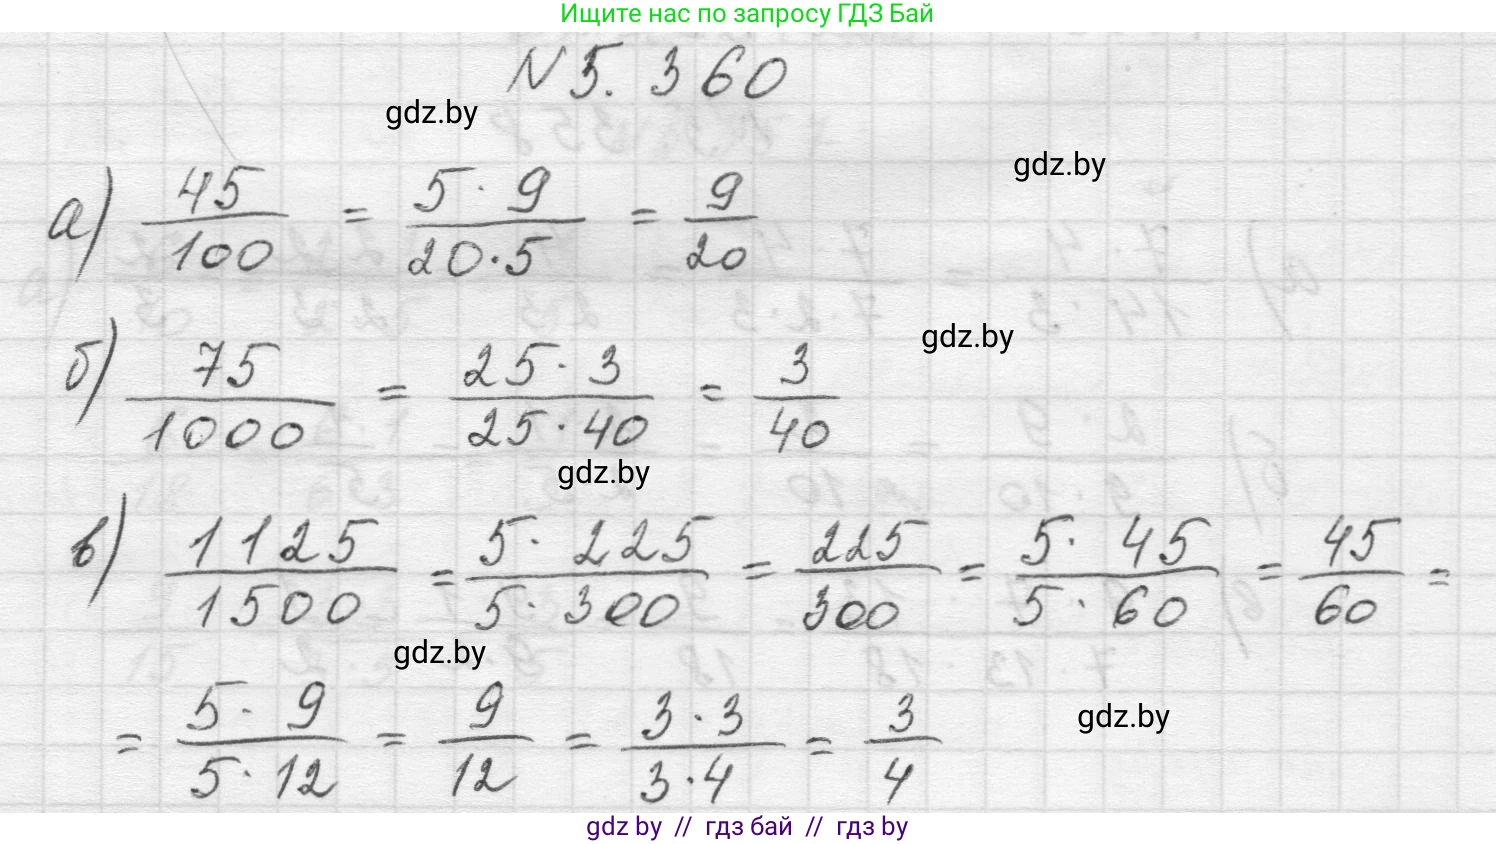 Ищите нас по запросу ГДЗ Бай
N 5. 360
gdz.by
gdz.by
а) 45/100 = 5·9/20·5 = 9/20
gdz.by
б) 75/1000 = 25·3/25·40 = 3/40
gdz.by
в) 1125/1500 = 5·225/5·300 = 225/300 = 5·45/5·60 = 45/60 =
gdz.by
gdz.by
= 5·9/5·12 = 9/12 = 3·3/3·4 = 3/4
gdz by // гдз бай // гдз by